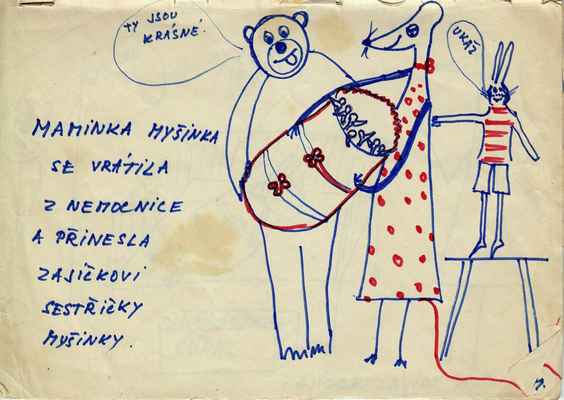 TY JSOU
KRÁSNÉ!
UKAŽ
MAMINKA MYŠINKA
SE VRÁTILA
Z NEMOCNICE
A PŘINESLA
ZAJÍČKOVI
SESTŘIČKY
MYŠINKY.